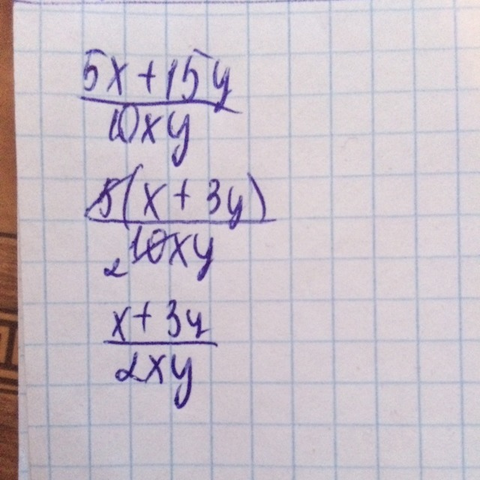 5x+15y
10xy
5(x+3y)
2 10xy
x+3y
2xy